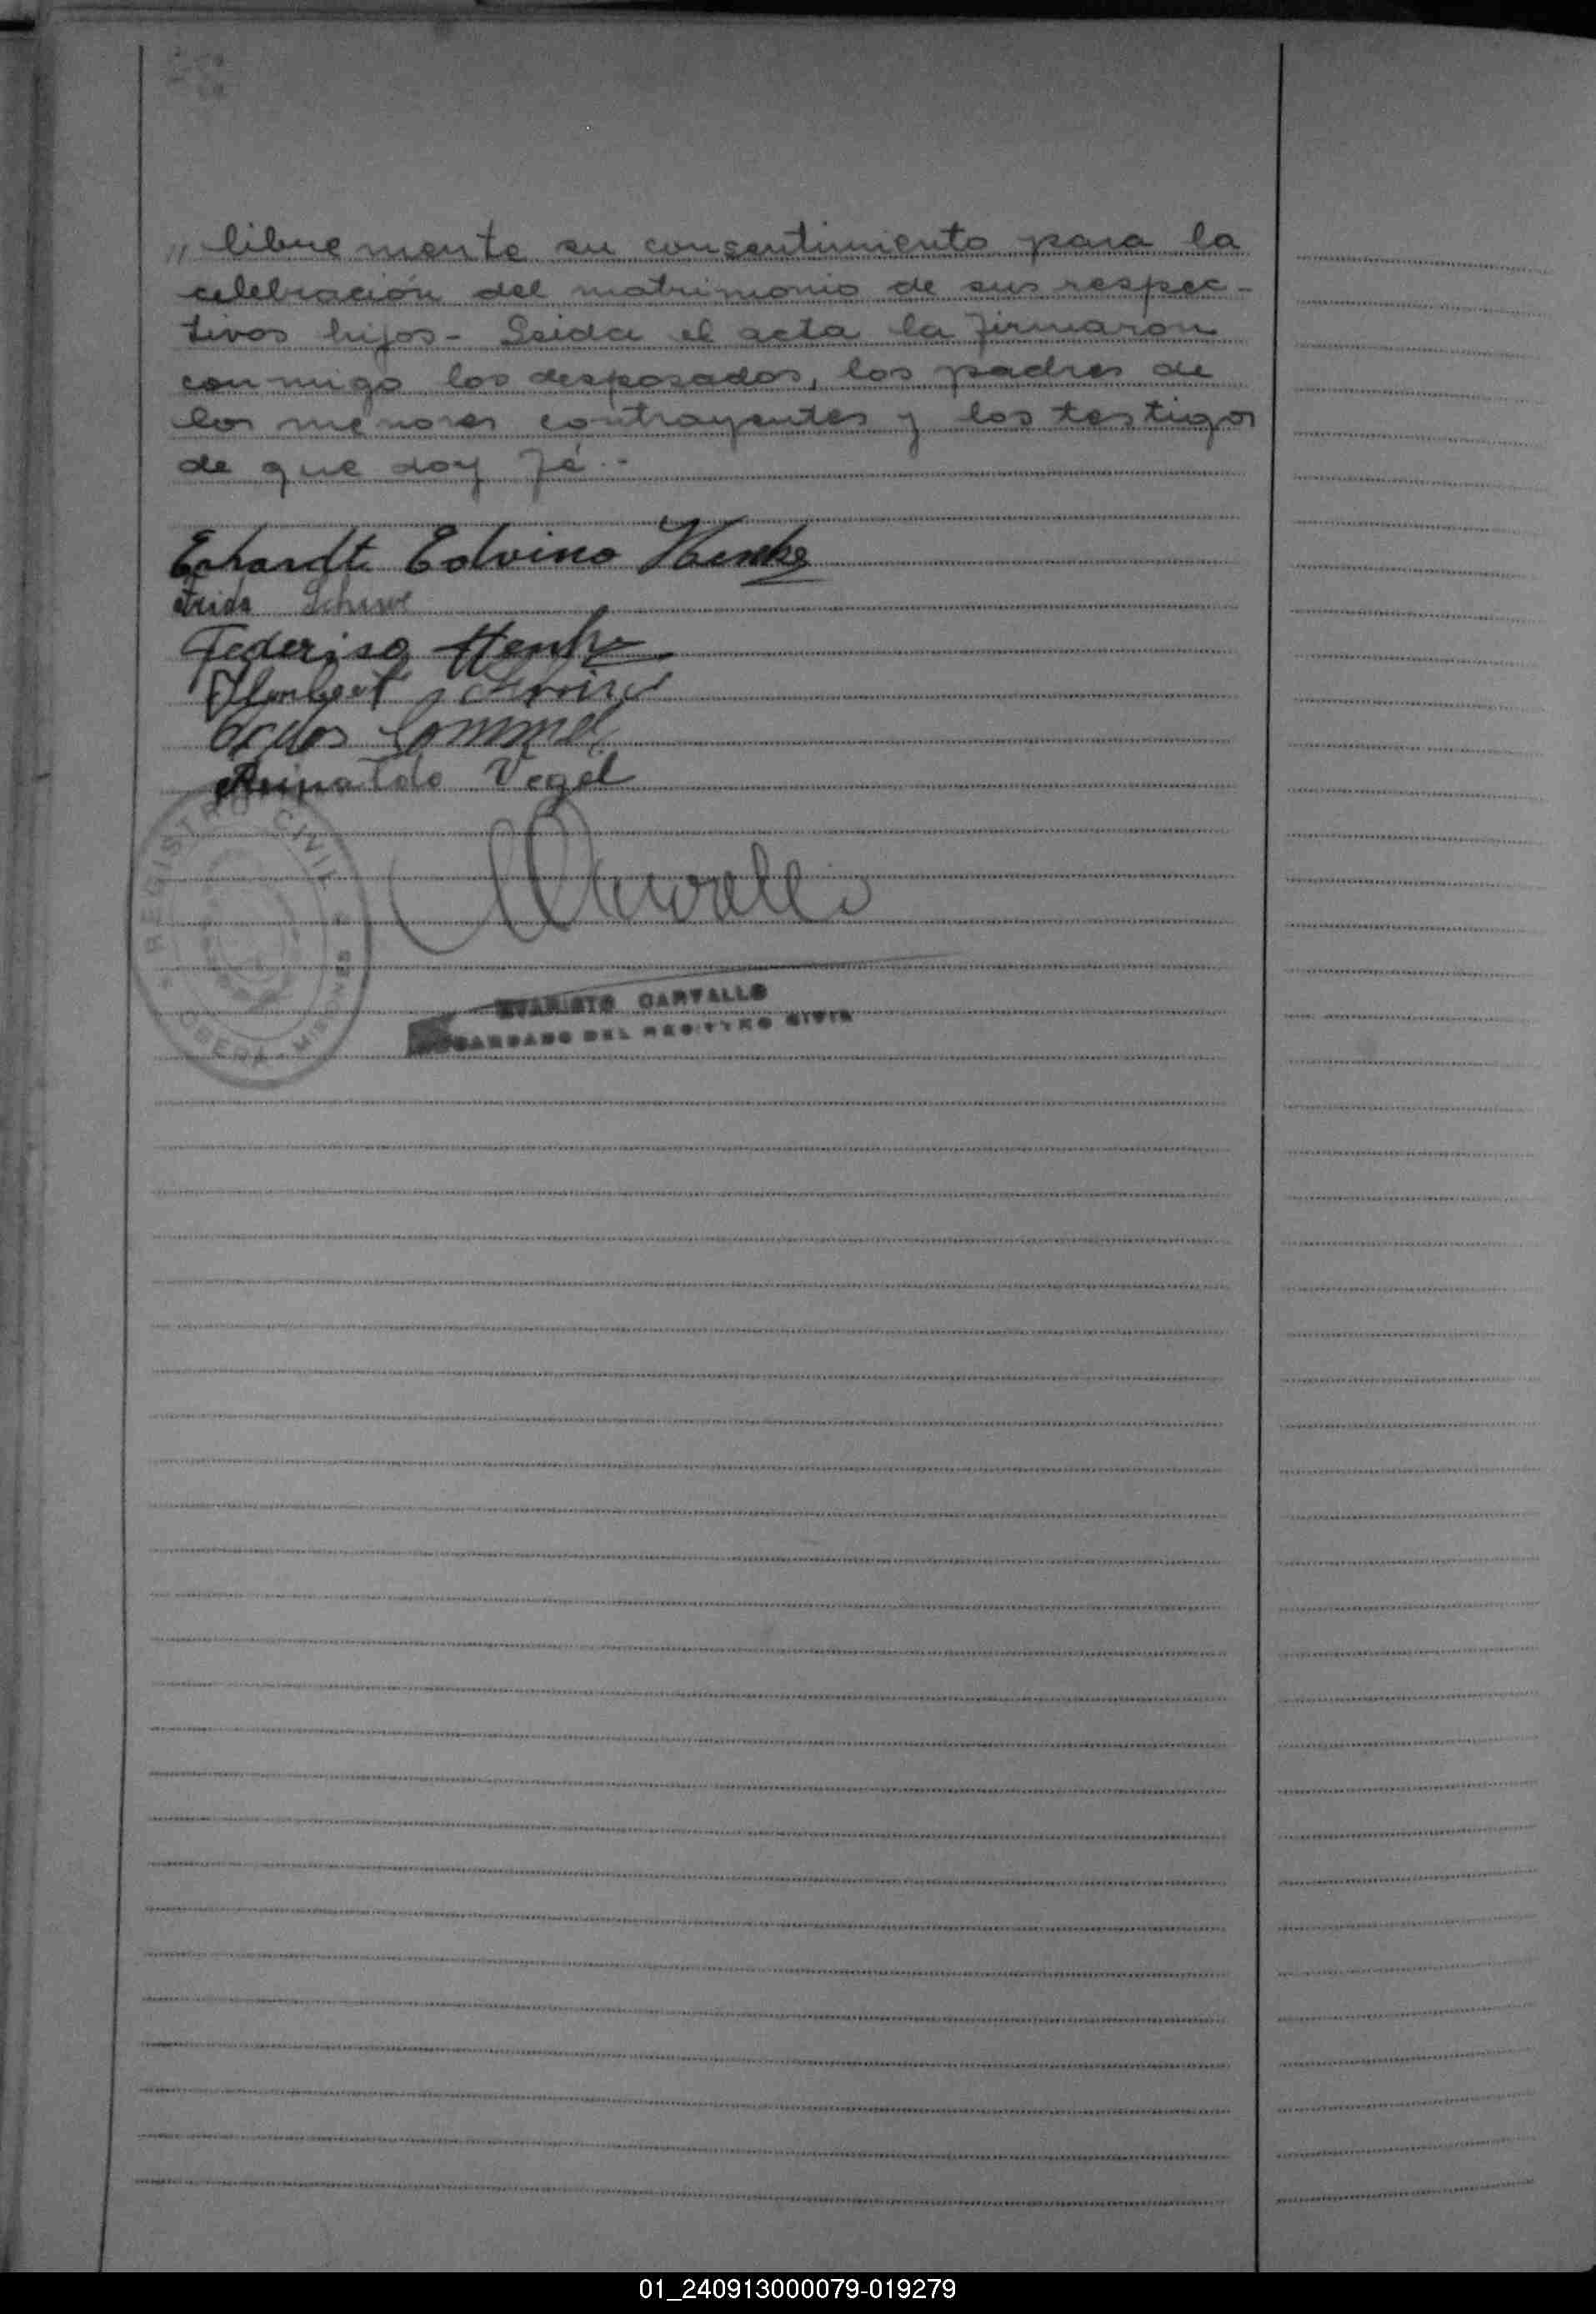 ,, libremente su consentimiento para la
celebración del matrimonio de sus respec-
tivos hijos- Leida el acta la firmaron
conmigo los desposados, los padres de
los menores contrayentes y los testigos
de que doy fé.-
Erhardt Edvino Henke
Frida
Federico Henke
Carlos Sommer
Reinaldo Vogel
REGISTRO CIVIL
OBERA - MISIONES
EVARISTO CARVALLO
DEL REGISTRO CIVIL
01_240913000079-019279